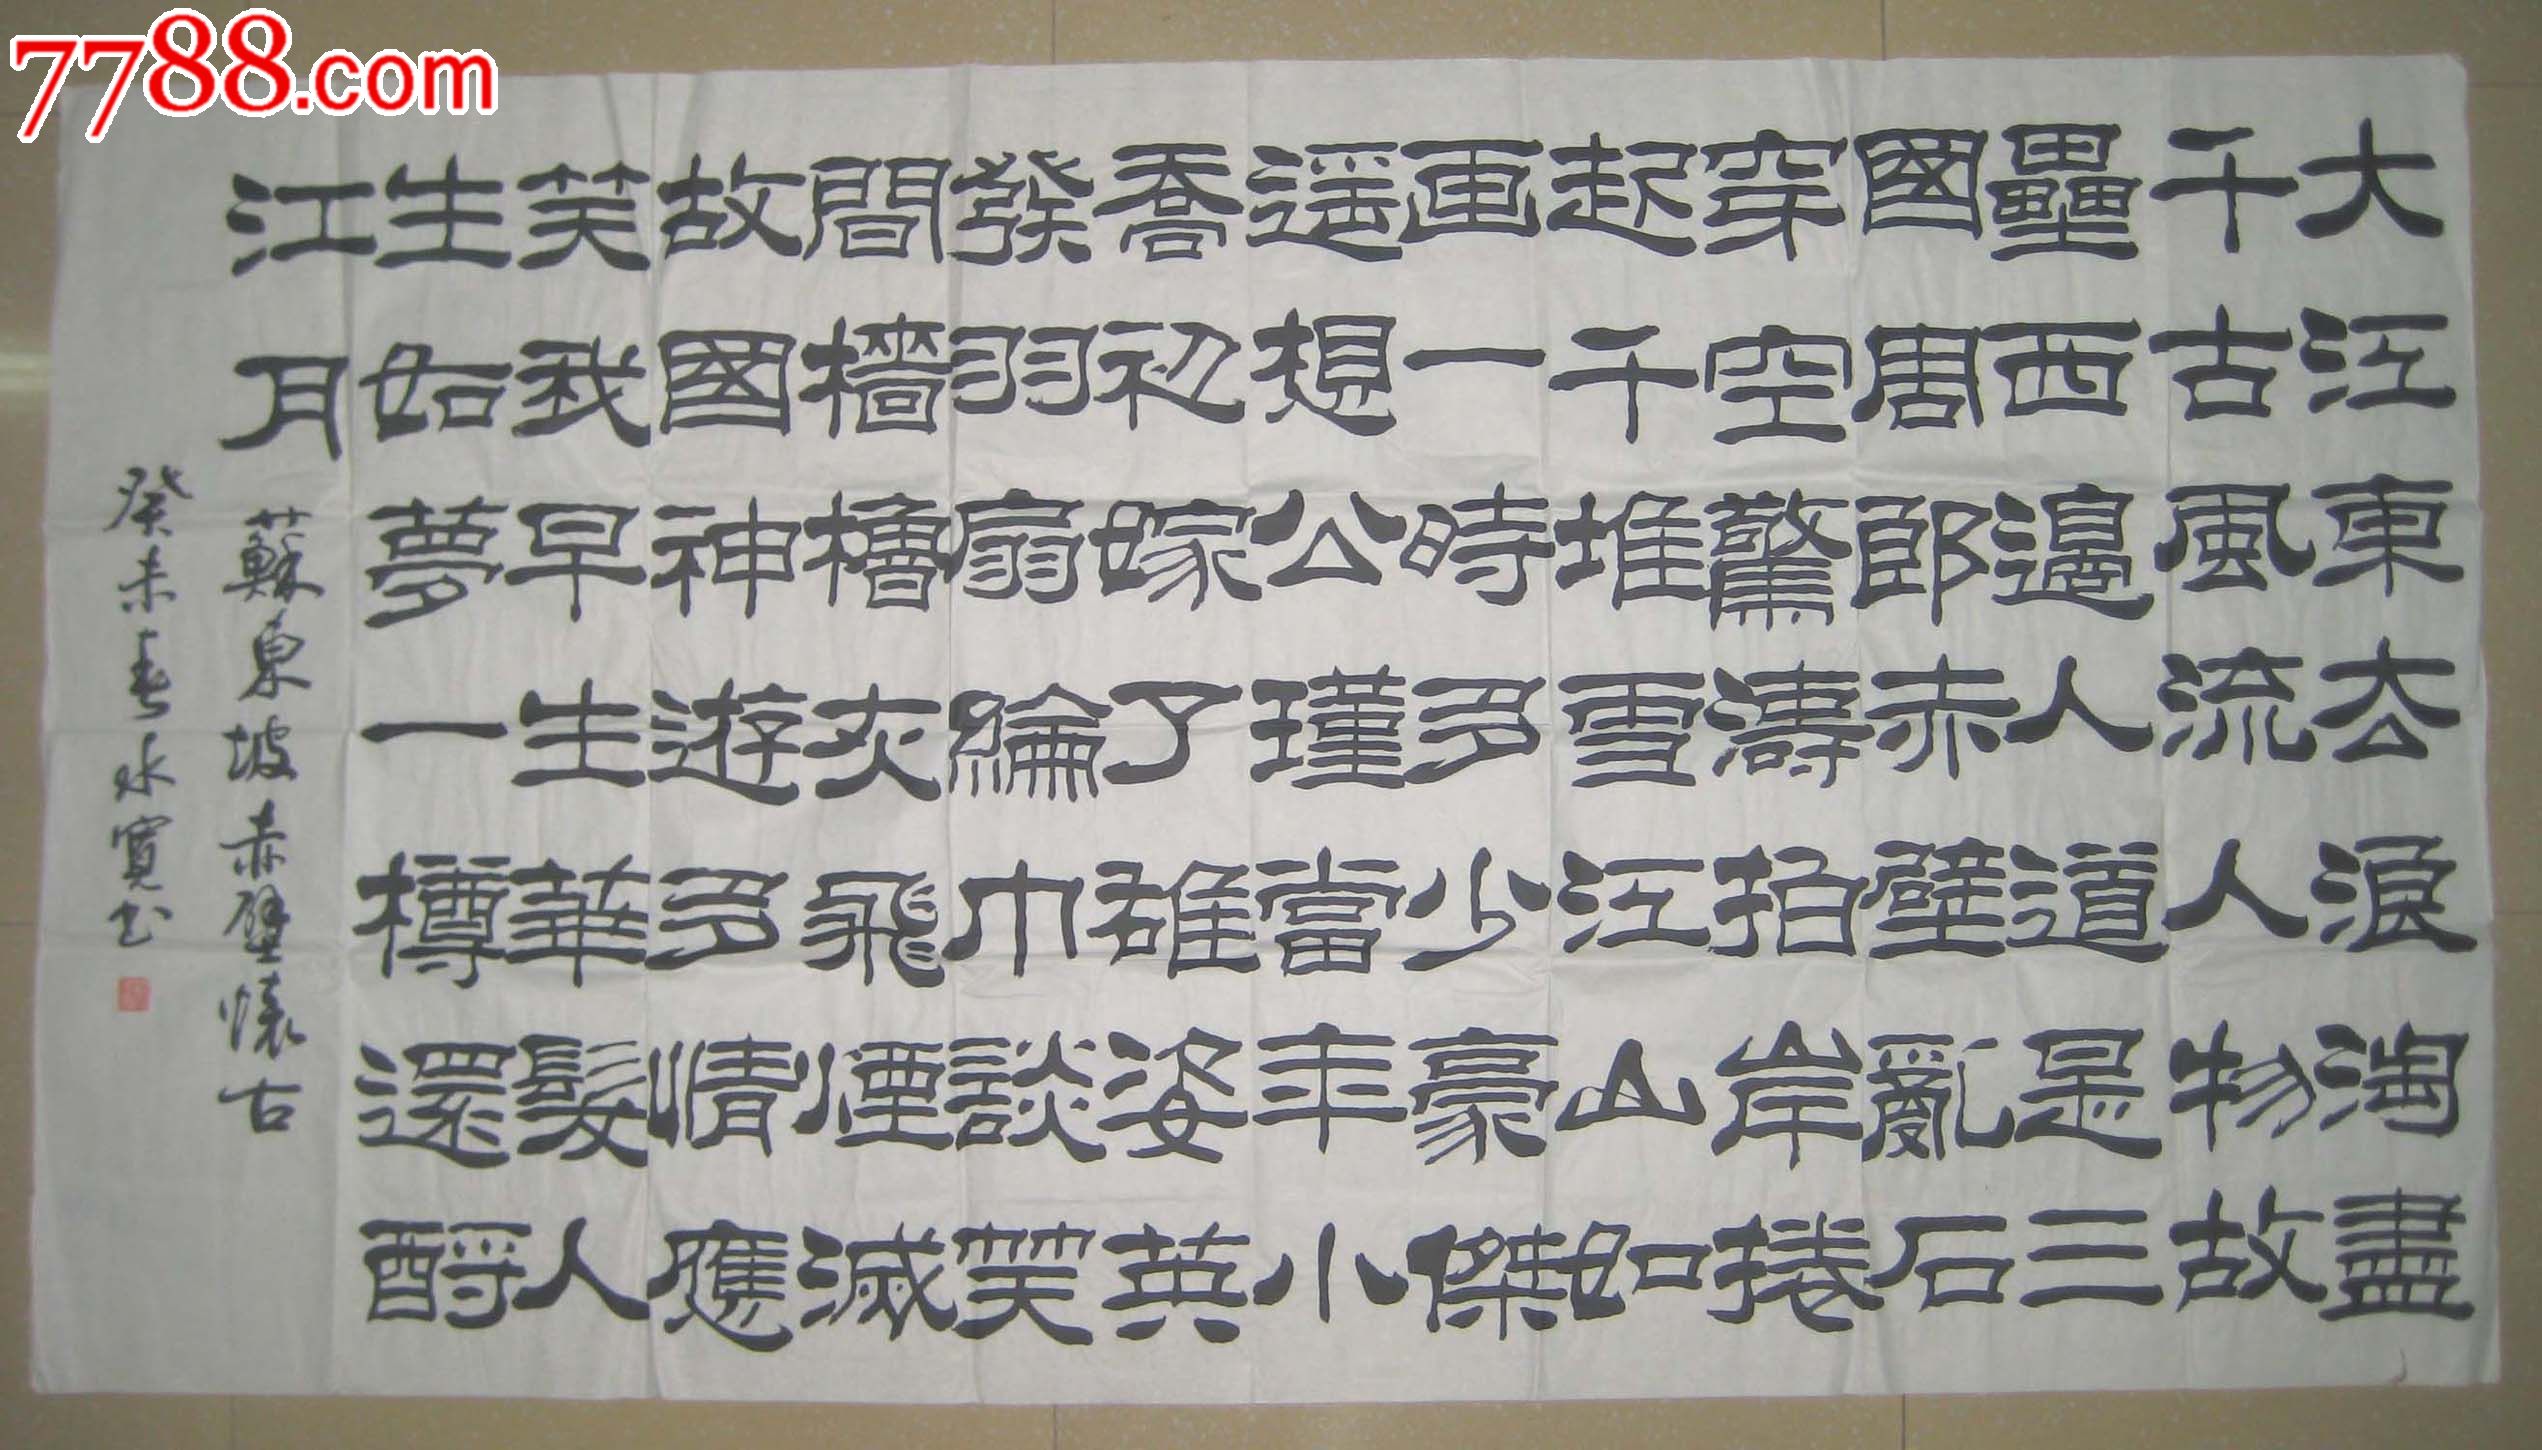 7788.com
大江東去浪淘盡
千古風流人物故
壘西邊人道是三
國周郎赤壁亂石
穿空驚濤拍岸捲
起千堆雪江山如
画一時多少豪傑
遥想公瑾當年小
喬初嫁了雄姿英
發羽扇綸巾談笑
間檣櫓灰飛煙滅
故國神遊多情應
笑我早生華髮人
生如夢一樽還酹
江月
蘇東坡赤壁懷古
癸未春水寬书